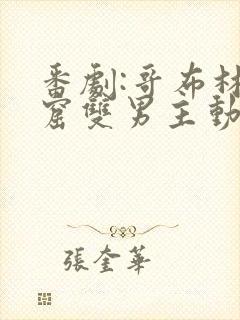 番劇:哥布林
窟雙男主動
張奎華